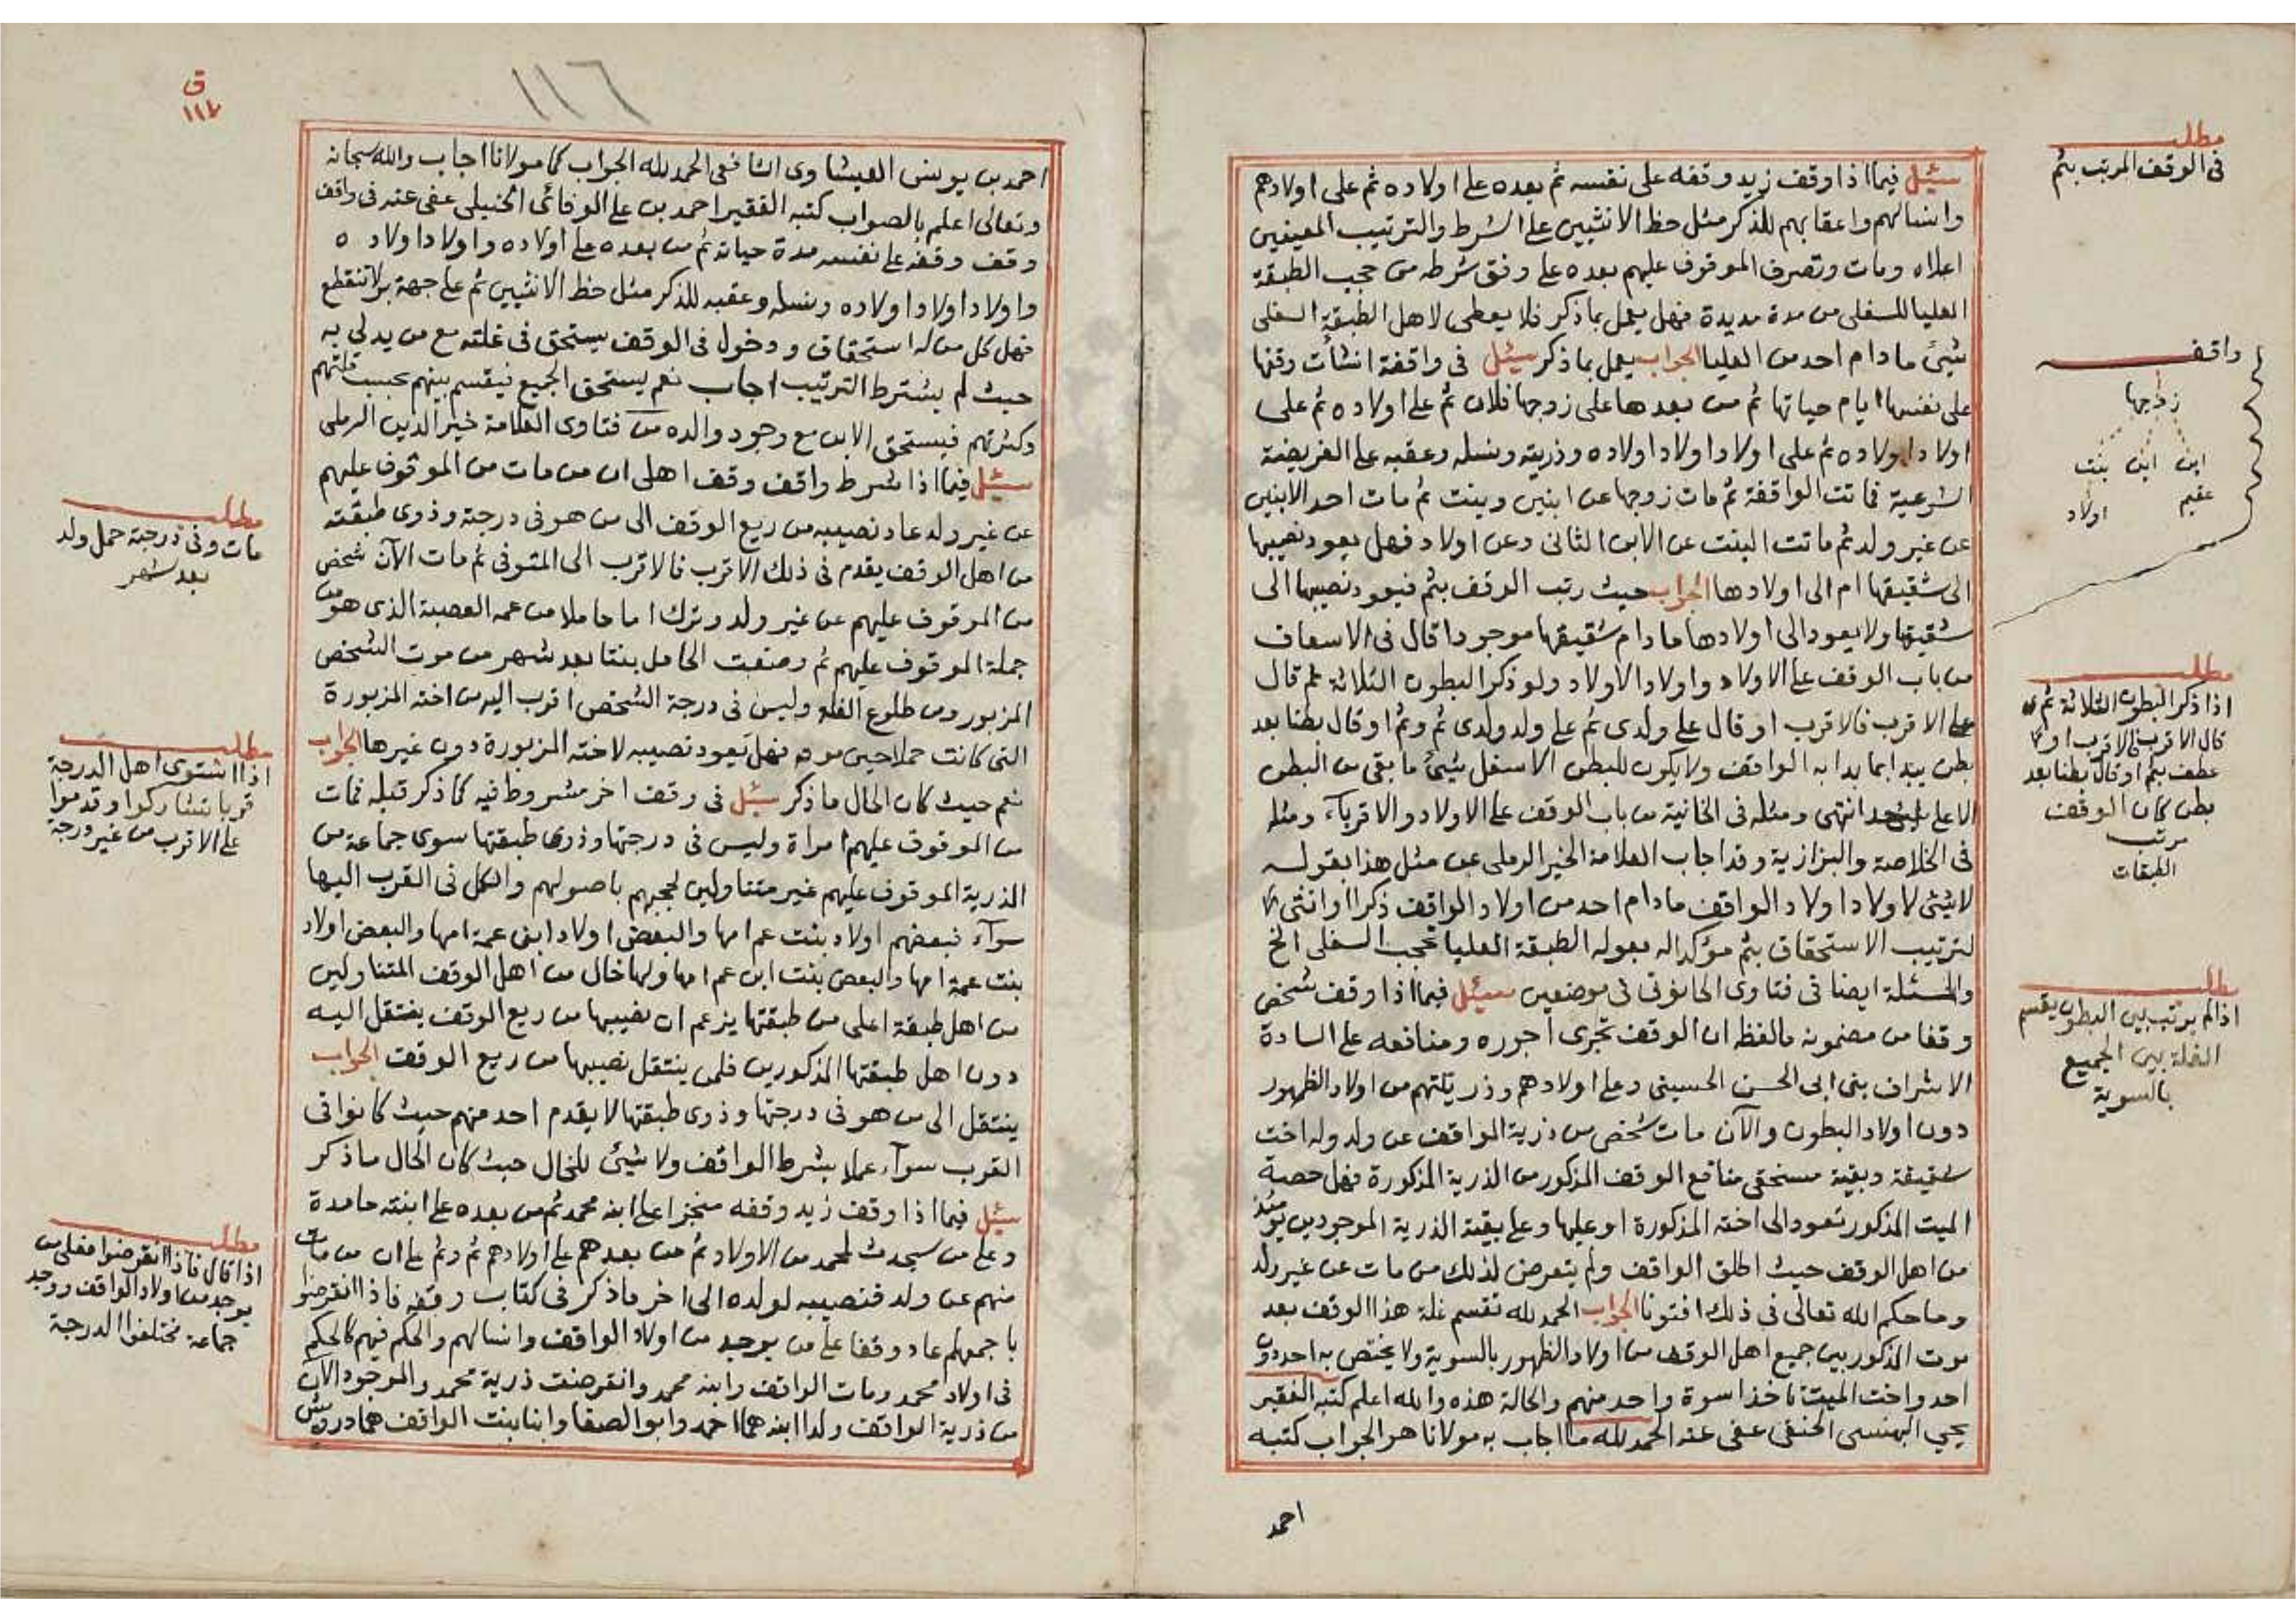 سئل فيما اذا وقف زيد وقفه على نفسه ثم بعده على اولاده ثم على اولادهم
وانسالهم واعقابهم للذكر مثل حظ الانثيين على الشرط والترتيب المعينين
اعلاه ومات وتصرف الموقوف عليهم بعده على وفق شرطه من حجب الطبقة
العليا للسفلى من مدة مديدة فهل يعمل بما ذكر فلا يعطى لاهل الطبقة السفلى
شيئ ما دام احد من العليا الجواب يعمل بما ذكر سئل في واقفة انشأت وقفها
على نفسها ايام حياتها ثم من بعدها على زوجها فلان ثم على اولاده ثم على
اولاد اولاده ثم على اولاد اولاد اولاده وذريته ونسله وعقبه على الفريضة
الشرعية فماتت الواقفة ثم مات زوجها عن ابنين وبنت ثم مات احد الابنين
عن غير ولد ثم ماتت البنت عن الابن الثاني وعن اولاد فهل يعود نصيبها
الى شقيقها ام الى اولادها الجواب حيث رتب الوقف بثم فيعود نصيبها الى
شقيقها ولا يعود الى اولادها ما دام شقيقها موجودا قال في الاسعاف
من باب الوقف على الاولاد واولاد الاولاد ولو ذكر البطون الثلاثة ثم قال
على الاقرب فالاقرب او قال على ولدي ثم على ولد ولدي ثم وثم او قال بطنا بعد
بطن يبدا بما بدا به الواقف ولا يكون للبطن الاسفل شيئ ما بقي من البطن
الاعلى احد انتهى ومثله في الخانية من باب الوقف على الاولاد والاقرباء ومثله
في الخلاصة والبزازية وقد اجاب العلامة الخير الرملي عن مثل هذا بقوله
لا شيئ لاولاد اولاد الواقف ما دام احد من اولاد الواقف ذكرا او انثى
لترتيب الاستحقاق بثم مؤكدا له بقوله الطبقة العليا تحجب السفلى الخ
والمسئلة ايضا في فتاوى الحانوتي في موضعين سئل فيما اذا وقف شخص
وقفا من مضمونه ما لفظه ان الوقف تجرى اجوره ومنافعه على السادة
الاشراف بني ابي الحسن الحسيني وعلى اولادهم وذريتهم من اولاد الظهور
دون اولاد البطون والآن مات شخص من ذرية الواقف عن ولد وله اخت
شقيقة وبقية مستحقي منافع الوقف المذكور من الذرية المذكورة فهل حصة
الميت المذكور تعود الى اخته المذكورة او عليها وعلى بقية الذرية الموجودين يومئذ
من اهل الوقف حيث اطلق الواقف ولم يتعرض لذلك من مات عن غير ولد
وما حكم الله تعالى في ذلك افتونا الجواب الحمد لله تقسم غلة هذا الوقف بعد
موت المذكور بين جميع اهل الوقف من اولاد الظهور بالسوية ولا يختص به احد دون
احد واخت الميت تاخذ اسوة واحد منهم والحالة هذه والله اعلم كتبه الفقير
يحيى البهنسي الحنفي عفي عنه الحمد لله ما اجاب به مولانا هو الجواب كتبه
احمد
مطلب
في الوقف المرتب بثم
واقف
زوجها
ابن ابن بنت
عقيم اولاد
مطلب
اذا ذكر البطون الثلاثة ثم
قال الاقرب فالاقرب او
عطف بثم او قال بطنا بعد
بطن كان الوقف
مرتب
الطبقات
مطلب
اذا لم يرتب بين البطون يقسم
الغلة بين الجميع
بالسوية
ق
١١٦
احمد بن يونس العيثاوي الشافعي الحمد لله الجواب كما مولانا اجاب والله سبحانه
وتعالى اعلم بالصواب كتبه الفقير احمد بن علي الوفائي الحنبلي عفي عنه في واقف
وقف وقفه على نفسه مدة حياته ثم من بعده على اولاده واولاد اولاده
واولاد اولاد اولاده ونسله وعقبه للذكر مثل حظ الانثيين ثم على جهة بر لا تنقطع
فهل كل من له استحقاق ودخول في الوقف يستحق في غلته مع من يدلي به
حيث لم يشترط الترتيب اجاب نعم يستحق الجميع فيقسم بينهم بحسب قلتهم
وكثرتهم فيستحق الابن مع وجود والده من فتاوى العلامة خير الدين الرملي
سئل فيما اذا شرط واقف وقف اهلي ان من مات من الموقوف عليهم
عن غير ولد عاد نصيبه من ريع الوقف الى من هو في درجته وذوي طبقته
من اهل الوقف يقدم في ذلك الاقرب فالاقرب الى المتوفى ثم مات الآن شخص
من الموقوف عليهم عن غير ولد وترك اما حاملا من عمه العصبة الذي هو من
جملة الموقوف عليهم ثم وضعت الحامل بنتا بعد شهر من موت الشخص
المزبور ومن طلوع الغلة وليس في درجة الشخص اقرب اليه من اخته المزبورة
التي كانت حملا حين موته فهل يعود نصيبه لاخته المزبورة دون غيرها الجواب
نعم حيث كان الحال ما ذكر سئل في وقف اخر مشروط فيه كما ذكر قبله فماتت
من الموقوف عليهم امراة وليس في درجتها وذوي طبقتها سوى جماعة من
الذرية الموقوف عليهم غير متناولين لحجبهم باصولهم والكل في القرب اليها
سوآء فبعضهم اولاد بنت عم امها والبعض اولاد ابني عمة امها والبعض اولاد
بنت عمة امها والبعض بنت ابن عم امها ولها خال من اهل الوقف المتناولين
من اهل طبقة اعلى من طبقتها يزعم ان نصيبها من ريع الوقف ينتقل اليه
دون اهل طبقتها المذكورين فلمن ينتقل نصيبها من ريع الوقف الجواب
ينتقل الى من هو في درجتها وذوي طبقتها لا يقدم احد منهم حيث كانوا في
القرب سوآء عملا بشرط الواقف ولا شيئ للخال حيث كان الحال ما ذكر
سئل فيما اذا وقف زيد وقفه منجزا على ابنه محمد ثم من بعده على ابنته حامدة
وعلى من سيحدث لمحمد من الاولاد ثم من بعدهم على اولادهم ثم وثم على ان من مات
منهم عن ولد فنصيبه لولده الى اخر ما ذكر في كتاب وقفه فاذا انقرضوا
باجمعهم عاد وقفا على من يوجد من اولاد الواقف وانسالهم والحكم فيهم كالحكم
في اولاد محمد ومات الواقف وابنه محمد وانقرضت ذرية محمد والموجود الآن
من ذرية الواقف ولدا ابنه هما احمد وابو الصفا وابنا بنت الواقف هما درويش
مطلب
مات وفي درجته حمل ولد
بعد شهر
مطلب
اذا استوى اهل الدرجة
قربا تشاركوا وقدموا
على الاقرب من غير درجة
مطلب
اذا قال فاذا انقرضوا فعلى من
يوجد من اولاد الواقف ووجد
جماعة مختلفوا الدرجة